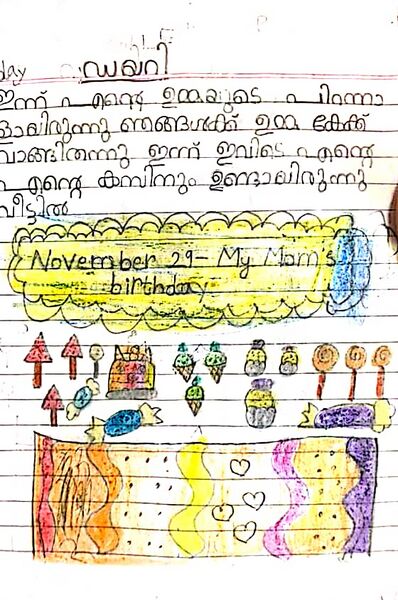 day ഡയറി
ഇന്ന് എന്റെ ഉമ്മയുടെ പിറന്നാ
ളായിരുന്നു ഞങ്ങൾക്ക് ഉമ്മ കേക്ക്
വാങ്ങിതന്നു ഇന്ന് ഇവിടെ എന്റെ
എന്റെ കസിനും ഉണ്ടായിരുന്നു
വീട്ടിൽ
November 29- My Mom's
birthday